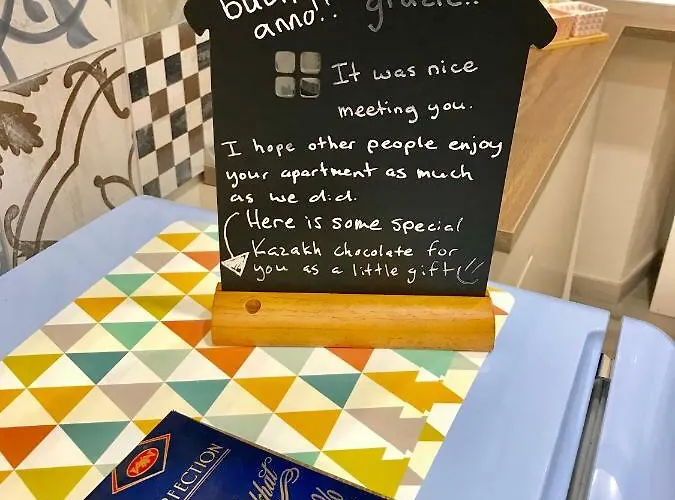 buon
anno!. grazie!!
It was nice
meeting you.
I hope other people enjoy
your apartment as much
as we did.
Here is some special
Kazakh chocolate for
you as a little gift
RFECTION